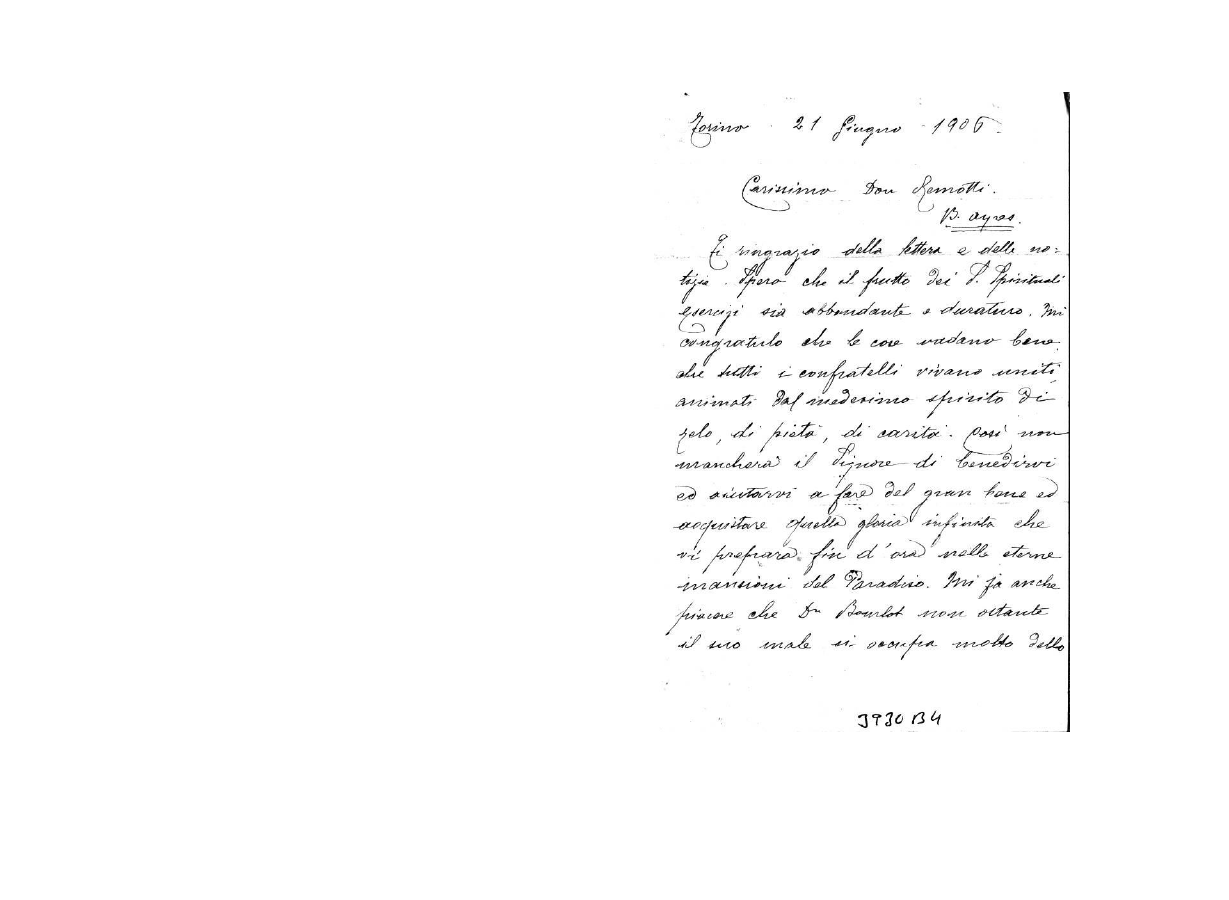 Torino 21 Giugno 1906
Carissimo Don Remotti.
B. Ayres.
Ti ringrazio della lettera e delle no=
tizie. Spero che il frutto dei S. Spirituali
esercizi sia abbondante e duraturo. Mi
congratulo che le cose vadano bene
che tutti i confratelli vivano uniti
animati dal medesimo spirito di
zelo, di pietà, di carità. Così non
mancherà il Signore di benedirvi
ed aiutarvi a fare del gran bene ed
acquistare quella gloria infinita che
vi prepara fin d'ora nelle eterne
mansioni del Paradiso. Mi fa anche
piacere che Dn Bourlot non ostante
il suo male si occupa molto dello
3930 B4